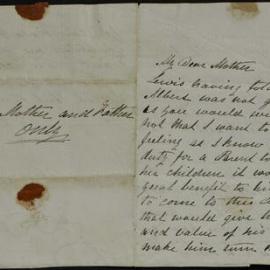 Mother and Father
only
My dear Mother
Lewis having told
Albert was not g
as you would wi
not that I want to
feeling as I know
duty for a Parent to
his children it wo
great benefit to hi
to come to this
that would give h
and value of his
make him turn